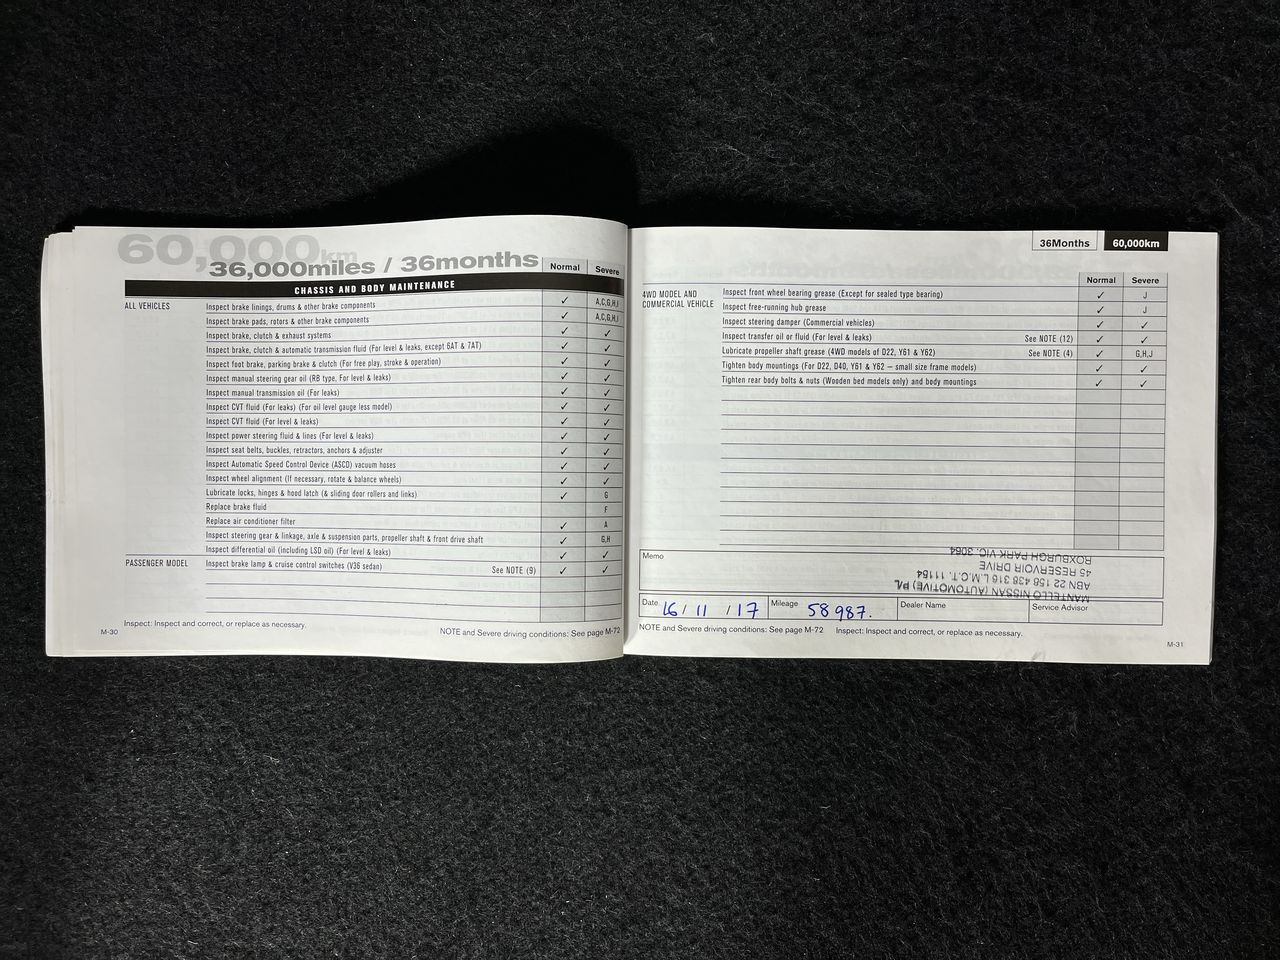 60,000km
36,000miles / 36months
Normal Severe
CHASSIS AND BODY MAINTENANCE
ALL VEHICLES Inspect brake linings, drums & other brake components ✓ A,C,G,H,I
Inspect brake pads, rotors & other brake components ✓ A,C,G,H,I
Inspect brake, clutch & exhaust systems ✓ ✓
Inspect brake, clutch & automatic transmission fluid (For level & leaks, except 6AT & 7AT) ✓ ✓
Inspect foot brake, parking brake & clutch (For free play, stroke & operation) ✓ ✓
Inspect manual steering gear oil (RB type, For level & leaks) ✓ ✓
Inspect manual transmission oil (For leaks) ✓ ✓
Inspect CVT fluid (For leaks) (For oil level gauge less model) ✓ ✓
Inspect CVT fluid (For level & leaks) ✓ ✓
Inspect power steering fluid & lines (For level & leaks) ✓ ✓
Inspect seat belts, buckles, retractors, anchors & adjuster ✓ ✓
Inspect Automatic Speed Control Device (ASCD) vacuum hoses ✓ ✓
Inspect wheel alignment (If necessary, rotate & balance wheels) ✓ ✓
Lubricate locks, hinges & hood latch (& sliding door rollers and links) ✓ G
Replace brake fluid F
Replace air conditioner filter ✓ A
Inspect steering gear & linkage, axle & suspension parts, propeller shaft & front drive shaft ✓ G,H
Inspect differential oil (including LSD oil) (For level & leaks) ✓ ✓
PASSENGER MODEL Inspect brake lamp & cruise control switches (V36 sedan) See NOTE (9) ✓ ✓
Inspect: Inspect and correct, or replace as necessary.
M-30 NOTE and Severe driving conditions: See page M-72
36Months 60,000km
Normal Severe
4WD MODEL AND COMMERCIAL VEHICLE Inspect front wheel bearing grease (Except for sealed type bearing) ✓ J
Inspect free-running hub grease ✓ J
Inspect steering damper (Commercial vehicles) ✓ ✓
Inspect transfer oil or fluid (For level & leaks) See NOTE (12) ✓ ✓
Lubricate propeller shaft grease (4WD models of D22, Y61 & Y62) See NOTE (4) ✓ G,H,J
Tighten body mountings (For D22, D40, Y61 & Y62 – small size frame models) ✓ ✓
Tighten rear body bolts & nuts (Wooden bed models only) and body mountings ✓ ✓
Memo
MANTELLO NISSAN (AUTOMOTIVE) P/L
ABN 22 156 438 316 L.M.C.T. 11164
45 RESERVOIR DRIVE
ROXBURGH PARK VIC. 3064
Date 16/11/17 Mileage 58987. Dealer Name Service Advisor
NOTE and Severe driving conditions: See page M-72 Inspect: Inspect and correct, or replace as necessary.
M-31